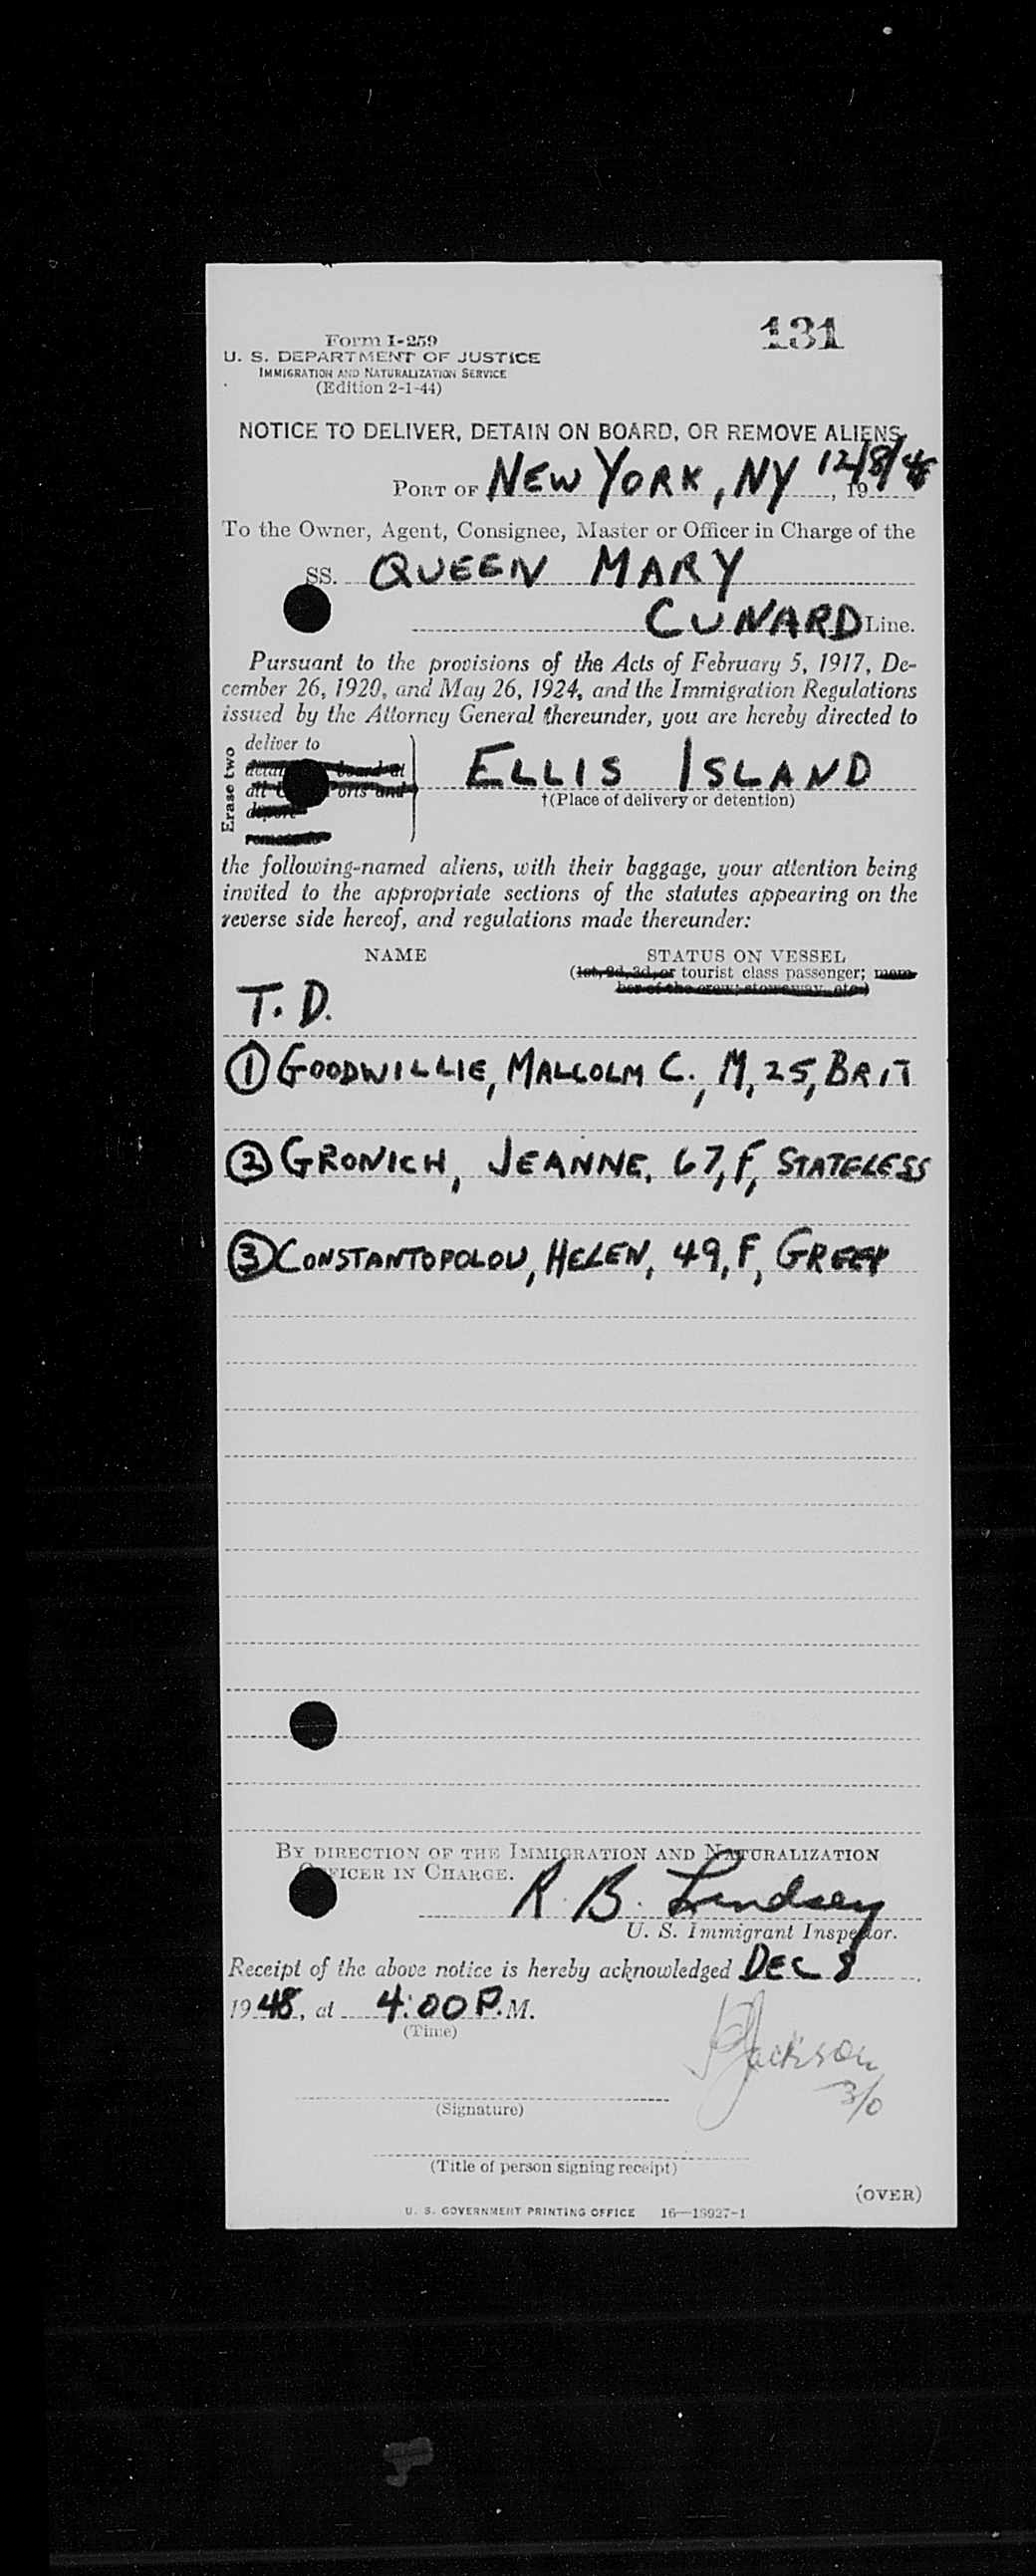 131
Form I-259
U. S. DEPARTMENT OF JUSTICE
IMMIGRATION AND NATURALIZATION SERVICE
(Edition 2-1-44)
NOTICE TO DELIVER, DETAIN ON BOARD, OR REMOVE ALIENS
PORT OF NEW YORK, NY 12/8/48, 19
To the Owner, Agent, Consignee, Master or Officer in Charge of the
SS. QUEEN MARY
CUNARD Line.
Pursuant to the provisions of the Acts of February 5, 1917, De-
cember 26, 1920, and May 26, 1924, and the Immigration Regulations
issued by the Attorney General thereunder, you are hereby directed to
Erase two
deliver to
board at
ports and
ELLIS ISLAND
†(Place of delivery or detention)
the following-named aliens, with their baggage, your attention being
invited to the appropriate sections of the statutes appearing on the
reverse side hereof, and regulations made thereunder:
NAME STATUS ON VESSEL
(1st, 2d, 3d, or tourist class passenger; mem-
ber of the crew; stowaway, etc.)
T. D.
① GOODWILLIE, MALCOLM C., M, 25, BRIT
② GRONICH, JEANNE, 67, F, STATELESS
③ CONSTANTOPOLOU, HELEN, 49, F, GREEK
BY DIRECTION OF THE IMMIGRATION AND NATURALIZATION
OFFICER IN CHARGE.
R. B. Lindsey
U. S. Immigrant Inspector.
Receipt of the above notice is hereby acknowledged DEC 8,
1948, at 4:00 P.M.
(Time)
Jackson
3/0
(Signature)
(Title of person signing receipt)
(OVER)
U. S. GOVERNMENT PRINTING OFFICE 16—18927-1